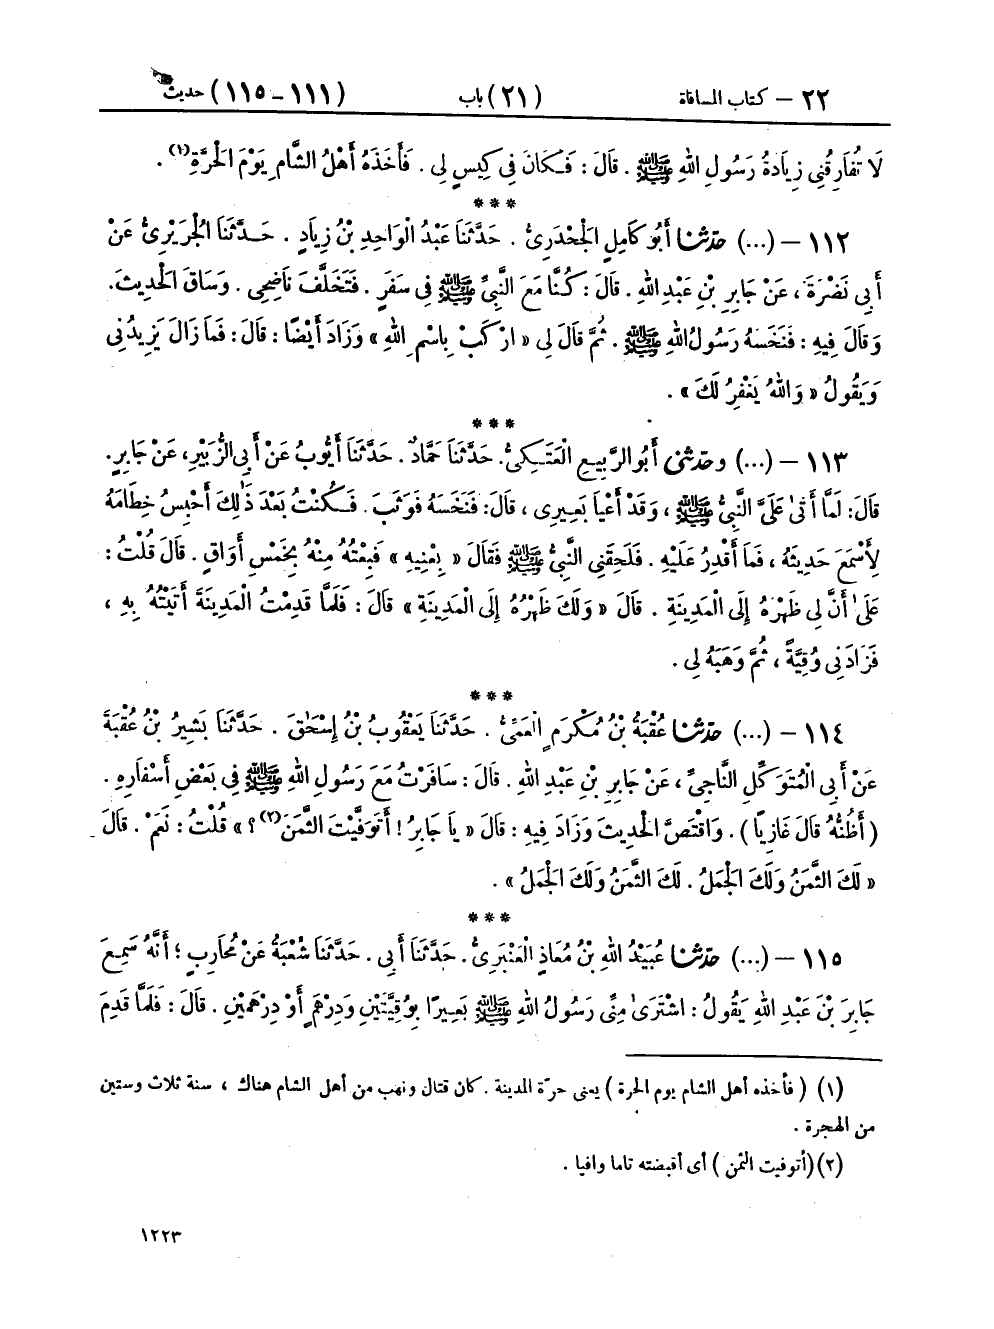 ٢٢ – كتاب المساقاة (٢١) باب (١١١ – ١١٥) حديث
لَا تُفَارِقُنِي زِيَادَةُ رَسُولِ اللهِ ﷺ . قَالَ : فَكَانَ فِي كِيسٍ لِي . فَأَخَذَهُ أَهْلُ الشَّامِ يَوْمَ الْحَرَّةِ(١) .
***
١١٢ – (...) حدّثنا أَبُو كَامِلٍ الْجَحْدَرِيُّ . حَدَّثَنَا عَبْدُ الْوَاحِدِ بْنُ زِيَادٍ . حَدَّثَنَا الْجُرَيْرِيُّ عَنْ
أَبِي نَضْرَةَ ، عَنْ جَابِرِ بْنِ عَبْدِ اللهِ . قَالَ : كُنَّا مَعَ النَّبِيِّ ﷺ فِي سَفَرٍ . فَتَخَلَّفَ نَاضِحِي . وَسَاقَ الْحَدِيثَ.
وَقَالَ فِيهِ : فَنَخَسَهُ رَسُولُ اللهِ ﷺ . ثُمَّ قَالَ لِي « ارْكَبْ بِاسْمِ اللهِ » وَزَادَ أَيْضًا : قَالَ : فَمَا زَالَ يَزِيدُنِي
وَيَقُولُ « وَاللهُ يَغْفِرُ لَكَ » .
***
١١٣ – (...) وحدّثني أَبُو الرَّبِيعِ الْعَتَكِيُّ. حَدَّثَنَا حَمَّادٌ . حَدَّثَنَا أَيُّوبُ عَنْ أَبِي الزُّبَيْرِ، عَنْ جَابِرٍ.
قَالَ: لَمَّا أَتَى عَلَيَّ النَّبِيُّ ﷺ ، وَقَدْ أَعْيَا بَعِيرِي ، قَالَ: فَنَخَسَهُ فَوَثَبَ . فَكُنْتُ بَعْدَ ذَلِكَ أَحْبِسُ خِطَامَهُ
لِأَسْمَعَ حَدِيثَهُ ، فَمَا أَقْدِرُ عَلَيْهِ . فَلَحِقَنِي النَّبِيُّ ﷺ فَقَالَ « بِعْنِيهِ » فَبِعْتُهُ مِنْهُ بِخَمْسِ أَوَاقٍ . قَالَ قُلْتُ :
عَلَى أَنَّ لِي ظَهْرَهُ إِلَى الْمَدِينَةِ . قَالَ « وَلَكَ ظَهْرُهُ إِلَى الْمَدِينَةِ » قَالَ : فَلَمَّا قَدِمْتُ الْمَدِينَةَ أَتَيْتُهُ بِهِ ،
فَزَادَنِي وُقِيَّةً ، ثُمَّ وَهَبَهُ لِي .
***
١١٤ – (...) حدّثنا عُقْبَةُ بْنُ مُكْرَمٍ الْعَمِّيُّ . حَدَّثَنَا يَعْقُوبُ بْنُ إِسْحَاقَ . حَدَّثَنَا بَشِيرُ بْنُ عُقْبَةَ
عَنْ أَبِي الْمُتَوَكِّلِ النَّاجِيِّ ، عَنْ جَابِرِ بْنِ عَبْدِ اللهِ . قَالَ : سَافَرْتُ مَعَ رَسُولِ اللهِ ﷺ فِي بَعْضِ أَسْفَارِهِ .
( أَظُنُّهُ قَالَ غَازِيًا ) . وَاقْتَصَّ الْحَدِيثَ وَزَادَ فِيهِ : قَالَ « يَا جَابِرُ ! أَتَوَفَّيْتَ الثَّمَنَ(٢) ؟ » قُلْتُ : نَعَمْ . قَالَ
« لَكَ الثَّمَنُ وَلَكَ الْجَمَلُ . لَكَ الثَّمَنُ وَلَكَ الْجَمَلُ » .
***
١١٥ – (...) حدّثنا عُبَيْدُ اللهِ بْنُ مُعَاذٍ الْعَنْبَرِيُّ . حَدَّثَنَا أَبِي . حَدَّثَنَا شُعْبَةُ عَنْ مُحَارِبٍ ؛ أَنَّهُ سَمِعَ
جَابِرَ بْنَ عَبْدِ اللهِ يَقُولُ : اشْتَرَى مِنِّي رَسُولُ اللهِ ﷺ بَعِيرًا بِوُقِيَّتَيْنِ وَدِرْهَمٍ أَوْ دِرْهَمَيْنِ . قَالَ : فَلَمَّا قَدِمَ
(١) ( فأخذه أهل الشام يوم الحرة ) يعنى حرّة المدينة . كان قتال ونهب من أهل الشام هناك ، سنة ثلاث وستين
من الهجرة .
(٢) (أتوفيت الثمن ) أى أقبضته تاما وافيا .
١٢٢٣